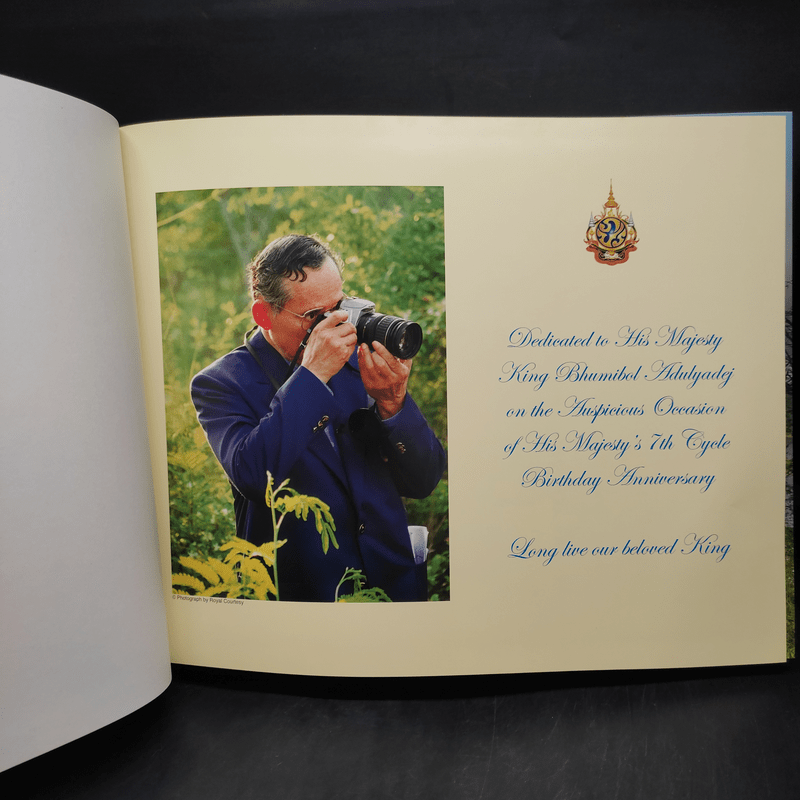 © Photograph by Royal Courtesy
Dedicated to His Majesty
King Bhumibol Adulyadej
on the Auspicious Occasion
of His Majesty's 7th Cycle
Birthday Anniversary
Long live our beloved King